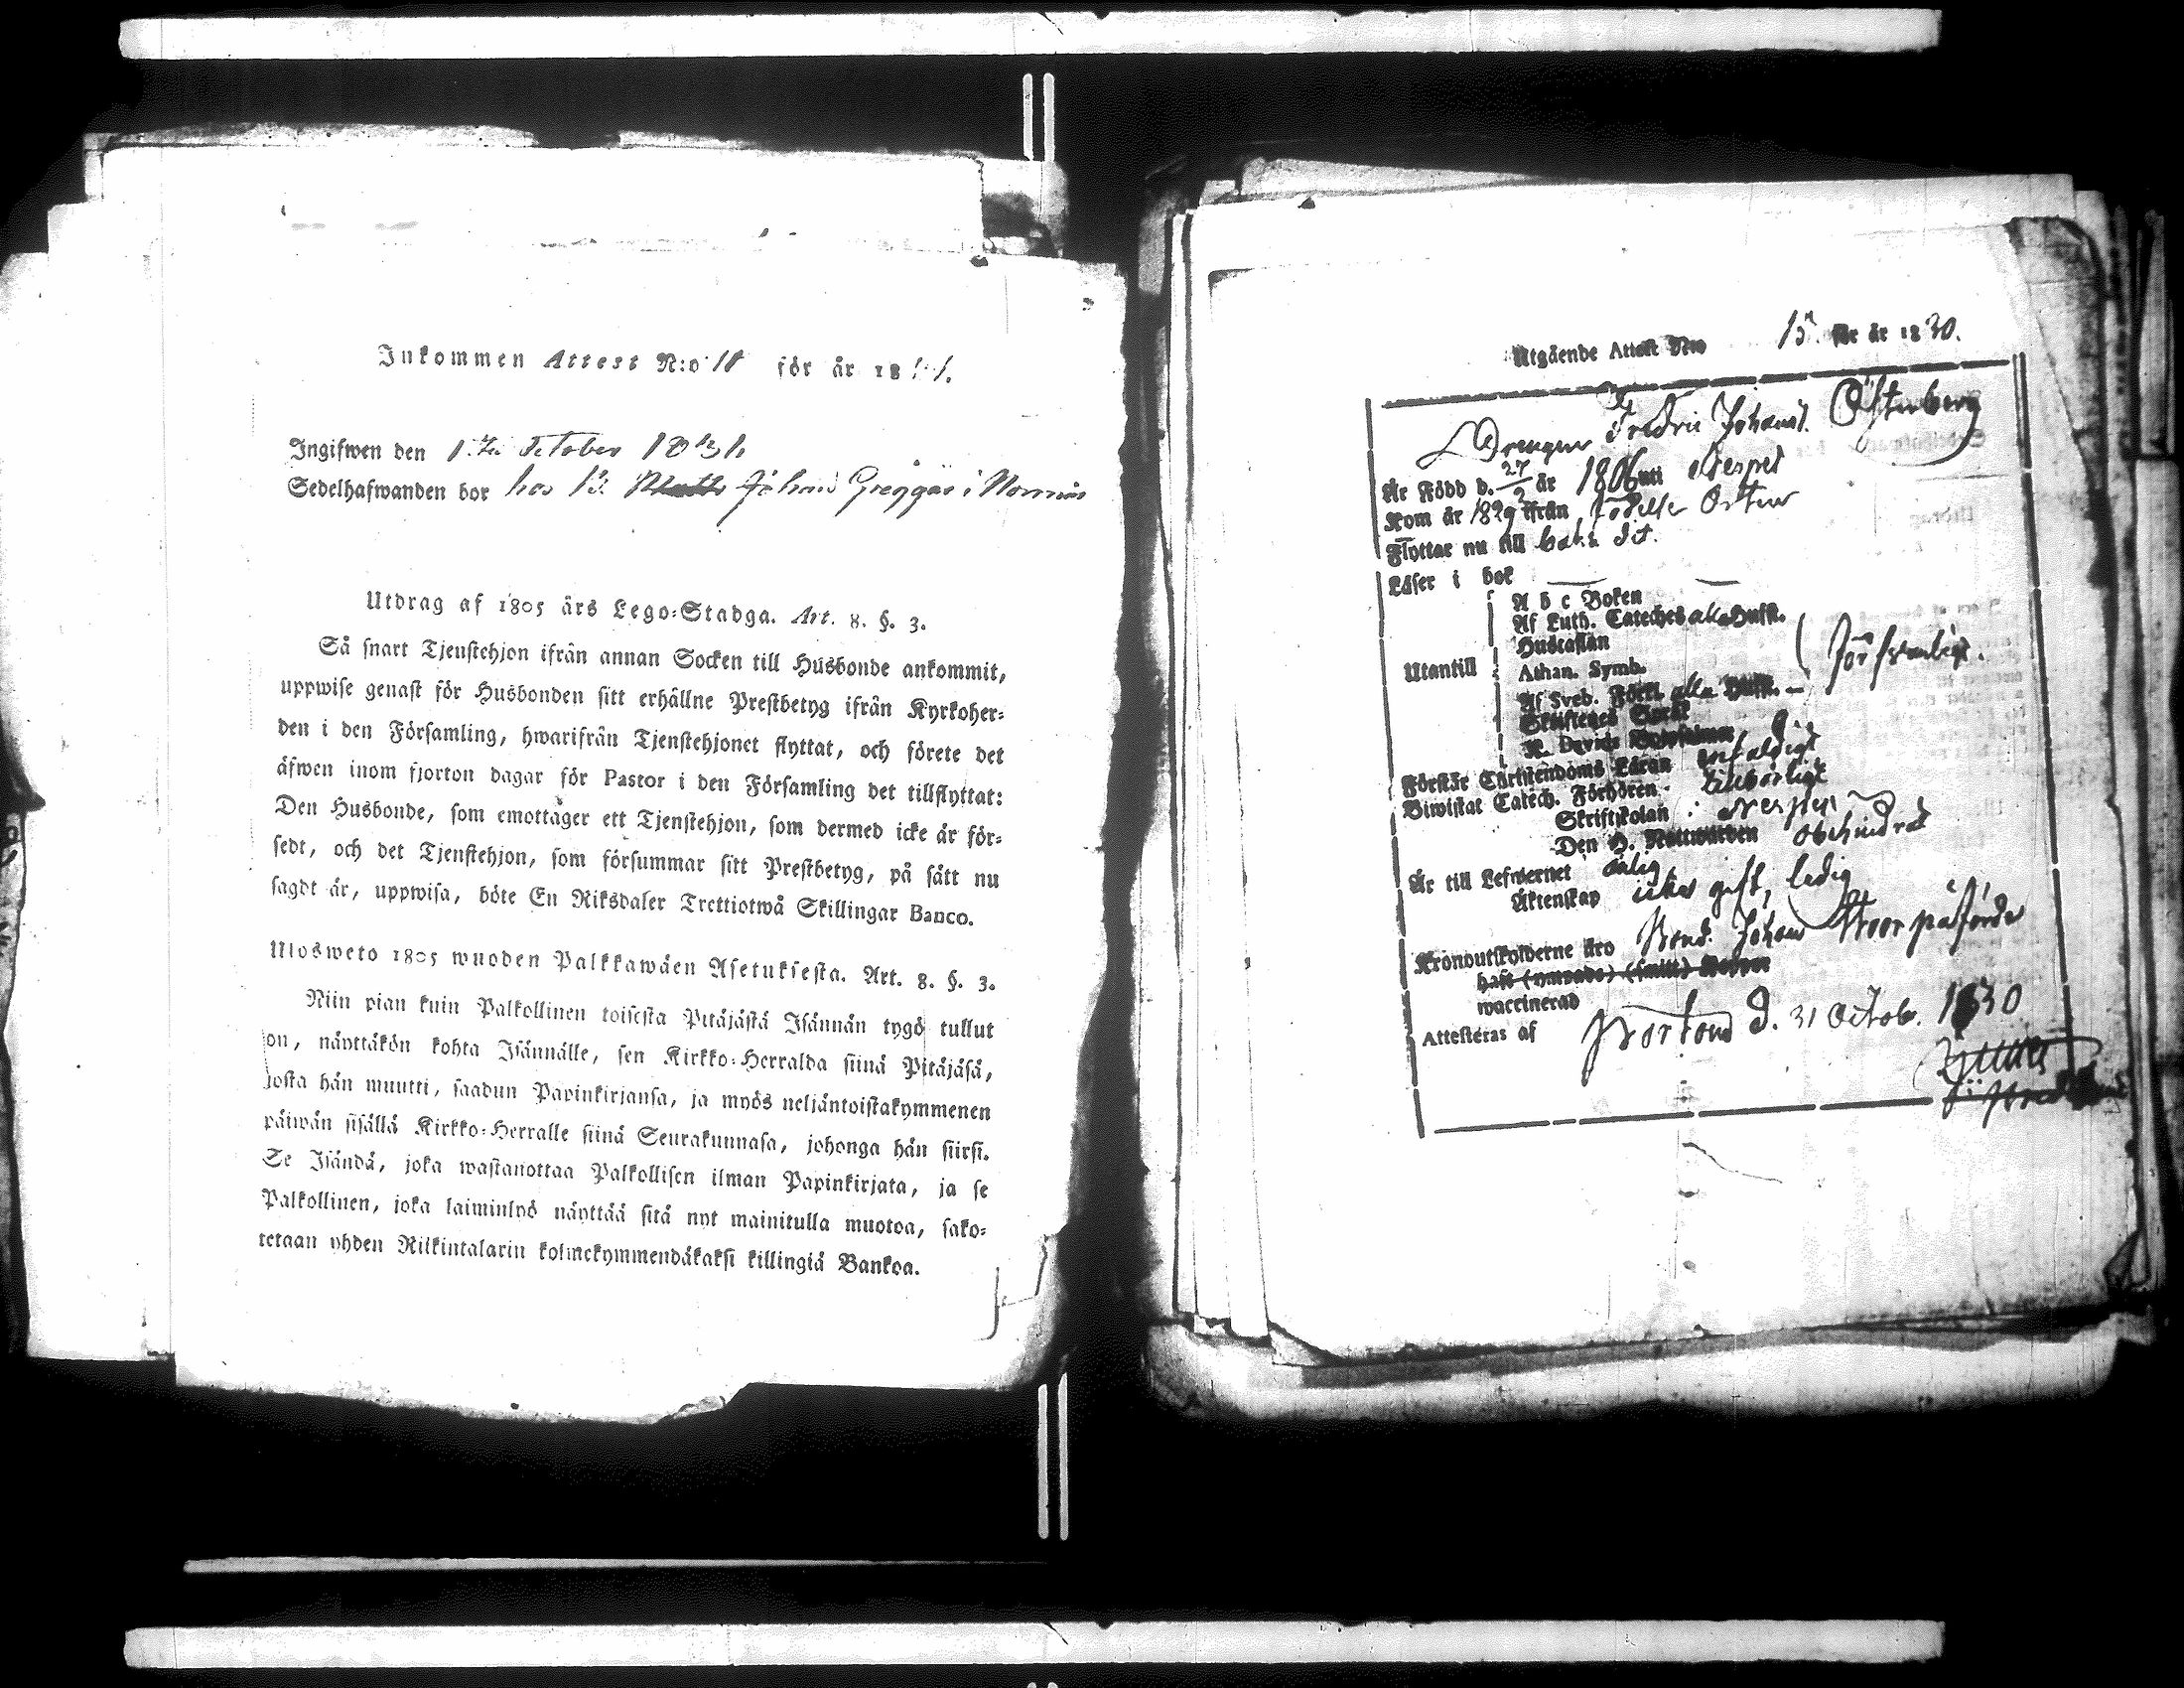 Inkommen Attest N:o 18 för år 18
Ingifwen den October 183
Sedelhafwanden bor hos B. Matts Johan Greggas i
Utdrag af 1805 års Lego-Stadga. Art. 8. §. 3.
Så snart Tjenstehjon ifrån annan Socken till Husbonde ankommit,
uppwise genast för Husbonden sitt erhållne Prestbetyg ifrån Kyrkoher-
den i den Församling, hwarifrån Tjenstehjonet flyttat, och förete det
äfwen inom fjorton dagar för Pastor i den Församling det tillflyttat:
Den Husbonde, som emottager ett Tjenstehjon, som dermed icke är för-
sedt, och det Tjenstehjon, som försummar sitt Prestbetyg, på sätt nu
sagdt är, uppwisa, böte En Riksdaler Trettiotwå Skillingar Banco.
Ulosweto 1805 wuoden Palkkawäen Asetuksesta. Art. 8. §. 3.
Niin pian kuin Palkollinen toisesta Pitäjästä Isännän tygö tullut
on, näyttäkön kohta Isännälle, sen Kirkko-Herralda siinä Pitäjäsä,
josta hän muutti, saadun Papinkirjansa, ja myös neljäntoistakymmenen
päiwän sisällä Kirkko-Herralle siinä Seurakunnasa, johonga hän siirsi.
Se Isändä, joka wastanottaa Palkollisen ilman Papinkirjata, ja se
Palkollinen, joka laiminlyö näyttää sitä nyt mainitulla muotoa, sako-
tetaan yhden Riikintalarin kolmekymmendäkaksi killingiä Bankoa.
Utgående Attest N:o 15. för år 1830.
Drengen Fredric Johans. Östenberg
Är Född d. 27/2 år 1806 uti Nerpes
Kom år 1829 ifrån
Flyttar nu till baka dit.
Läser i bok
A b c Boken
Af Luth. Cateches alla Hufst.
Hustaflan
Utantill Athan. Symb. försvarligt.
Af Sveb. Förkl. alla Hufst.
Skriftenes Språk
K. Davids Botpsalmer
Förstår Christendoms Läran enfaldigt
Biwistat Catech. Förhören tillbörligt
Skriftskolan i Nerpes
Den H. Nattwarden obehindrad
Är till Lefwernet
Äktenskap icke gift, ledig
Kronoutskylderne äro Bond. Johan påförde
haft (ympade) (smitt) Koppor
vaccinerad
Attesteras af d. 31 Octob. 1830